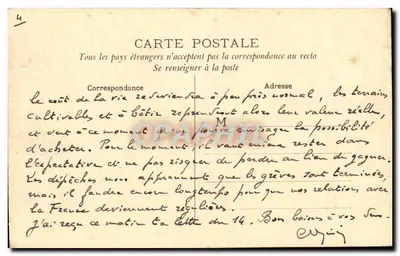 4
CARTE POSTALE
Tous les pays étrangers n'acceptent pas la correspondance au recto
Se renseigner à la poste
Correspondance
Adresse
M
le coût de la vie redeviendra à peu près normal, les terrains
cultivables et à bâtir reprendront alors leur valeur réelle,
et c'est à ce moment qu'on pourra envisager la possibilité
d'acheter. Pour le moment il vaut mieux rester dans
l'expectative et ne pas risquer de perdre au lieu de gagner.
Les dépêches nous apprennent que les grèves sont terminées,
mais il faudra encore longtemps pour que nos relations avec
la France deviennent régulières.
J'ai reçu ce matin ta lettre du 14. Bons baisers à vous deux.